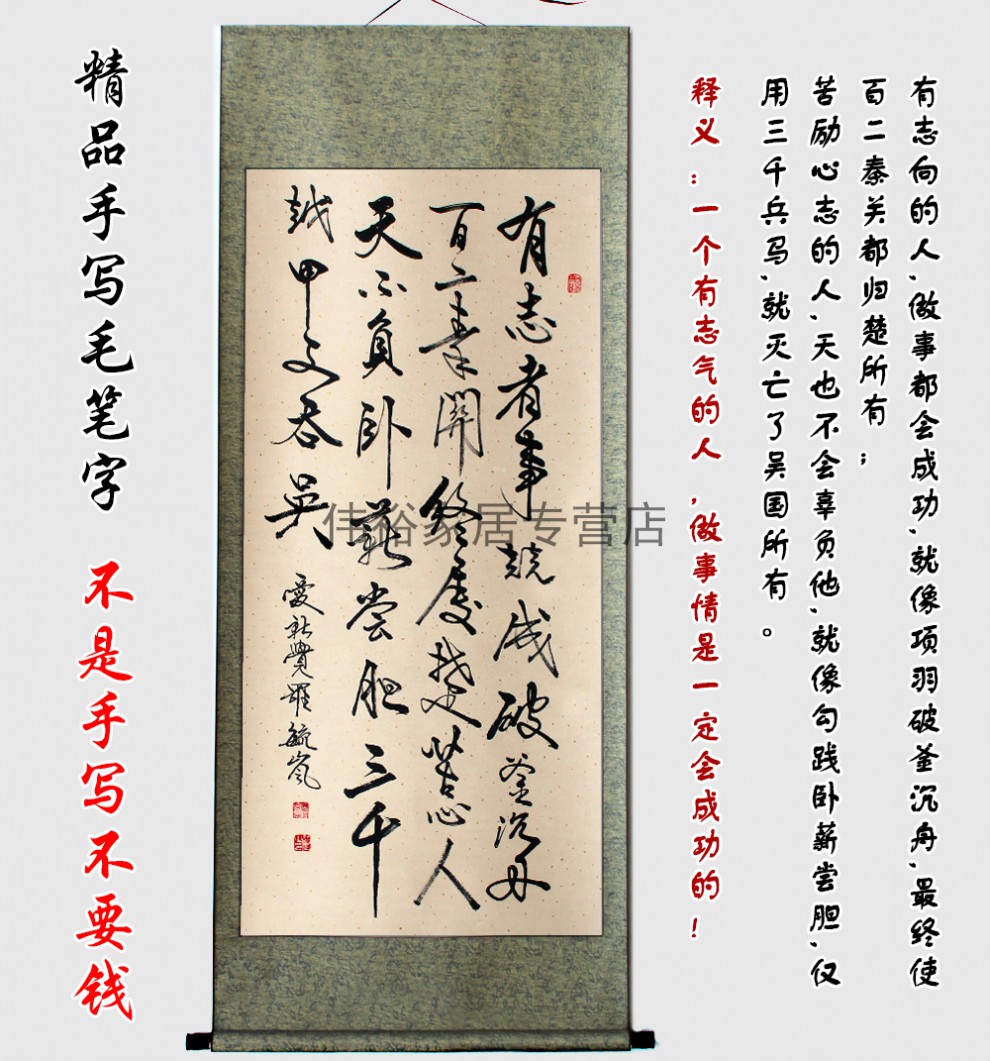 有志向的人、做事都会成功、就像项羽破釜沉舟、最终使
百二秦关都归楚所有；
苦励心志的人、天也不会辜负他、就像勾践卧薪尝胆、仅
用三千兵马、就灭亡了吴国所有。
释义：一个有志气的人,做事情是一定会成功的！
有志者事竞成破釜沉舟
百二秦關終屬楚苦心人
天不負卧薪尝胆三千
越甲吞吴
愛新覺羅毓嵐
伟裕家居专营店
精品手写毛笔字 不是手写不要钱